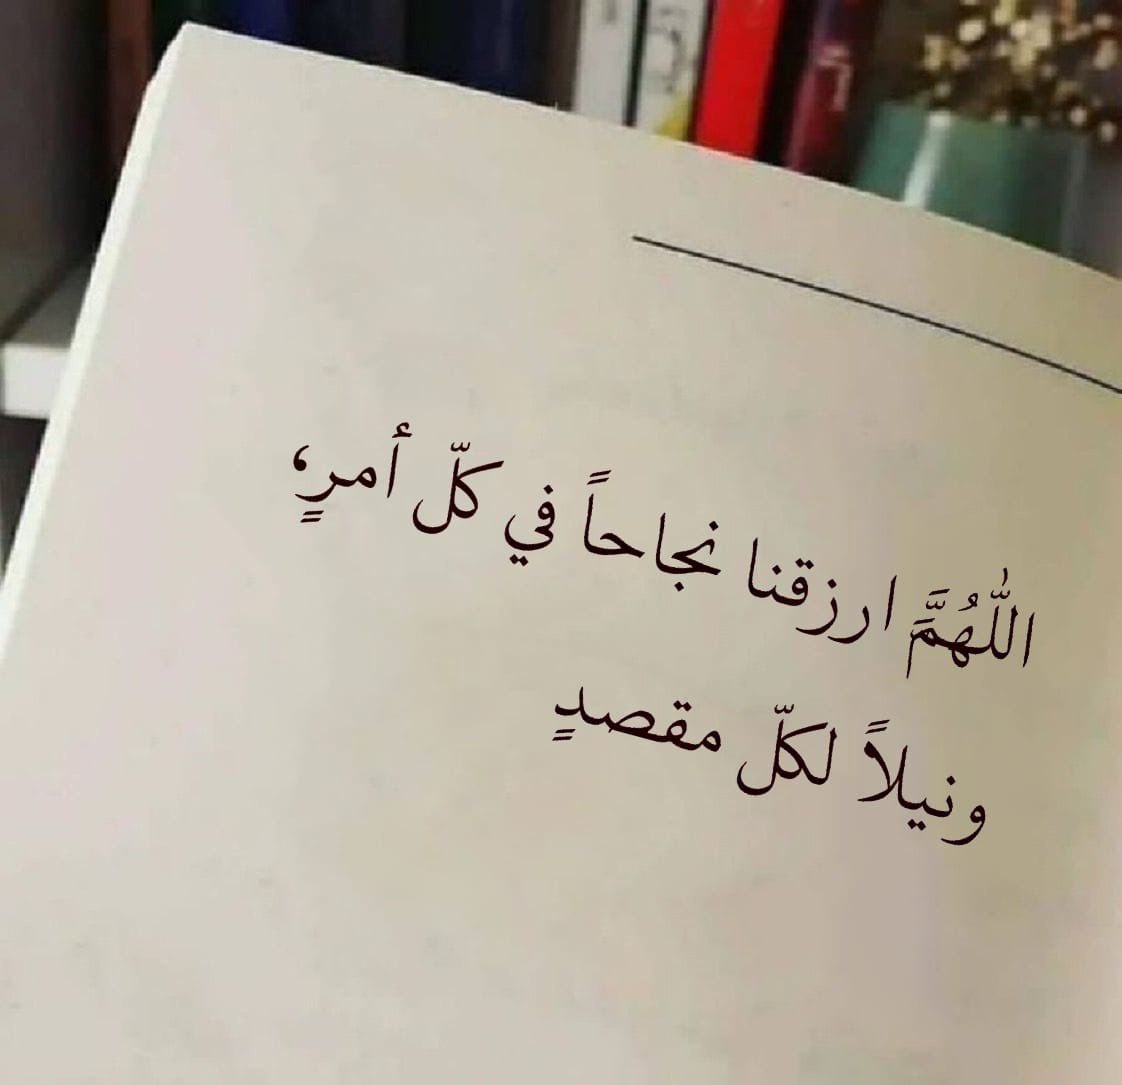 اللّٰهُمَّ ارزقنا نجاحاً في كلّ أمرٍ،
ونيلاً لكلّ مقصدٍ